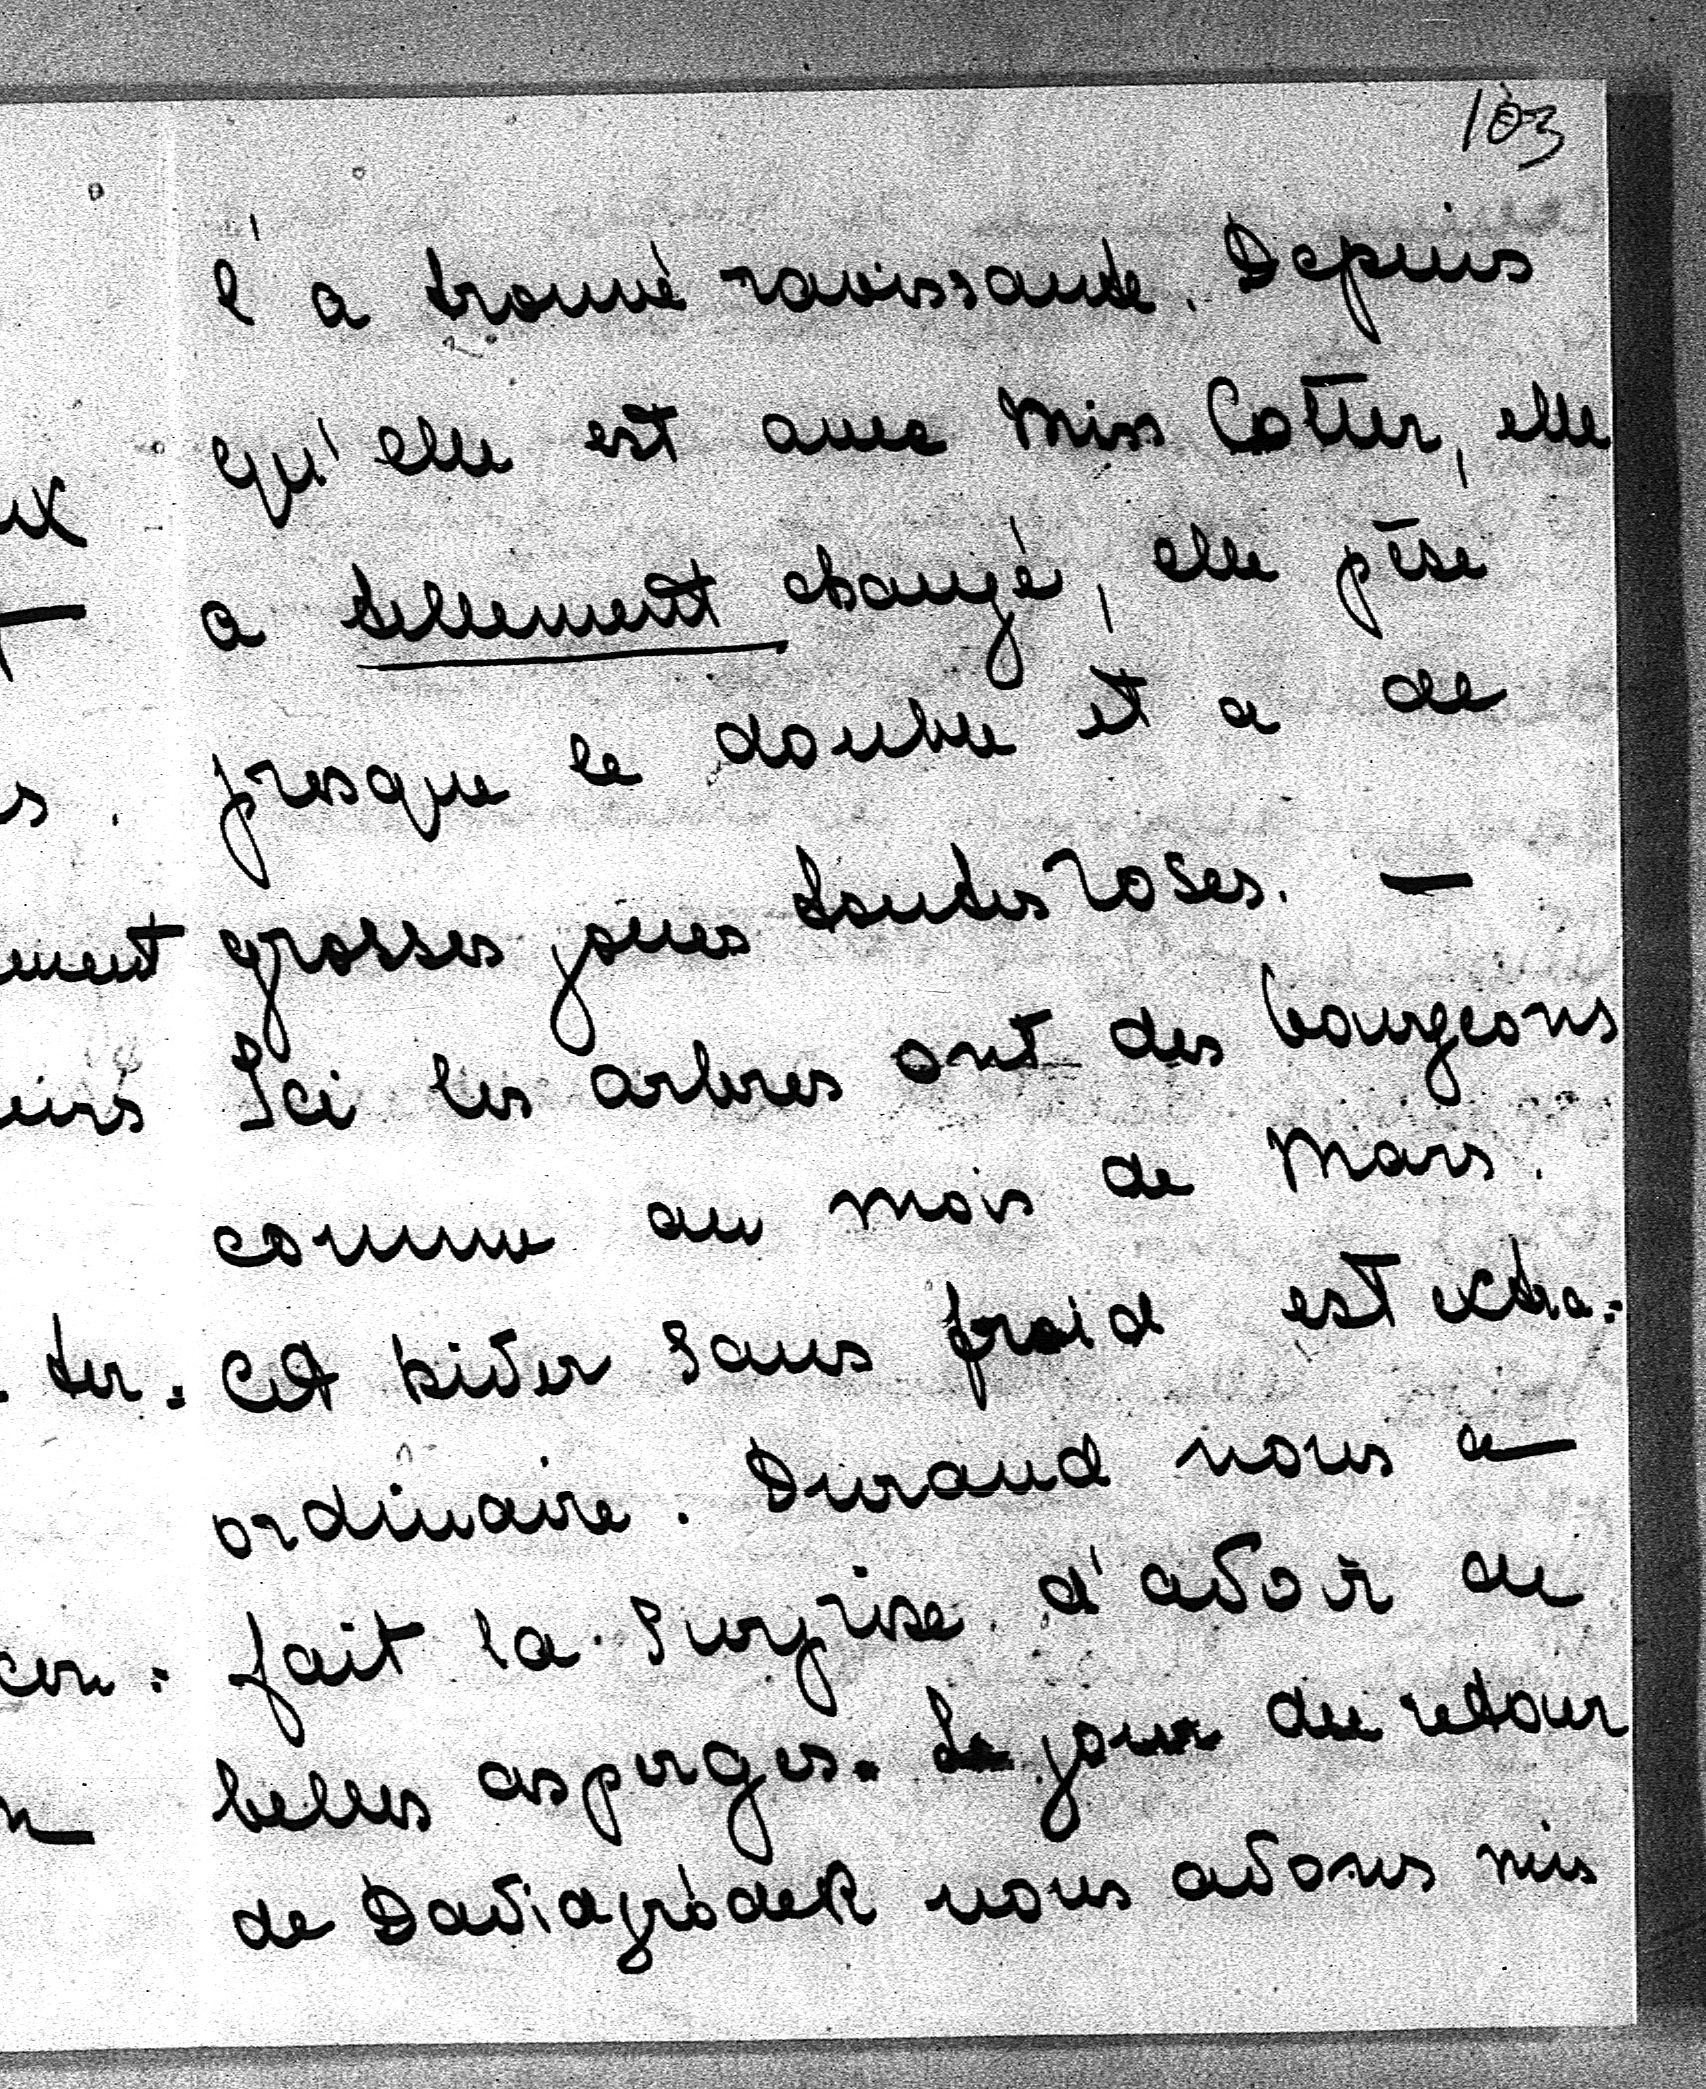 103
l'a trouvé ravissante. Depuis
qu'elle est avec Miss Cotter, elle
a tellement changé, elle pèse
presque le double et a de
grosses joues toutes roses. —
Ici les arbres ont des bourgeons
comme au mois de Mars.
Cet hiver sans froid est extra=
ordinaire. Durand nous a
fait la surprise d'avoir de
belles asperges. Le jour du retour
de Davidgródek nous avons mis
ux
s.
ement
eurs
. ter=
con=